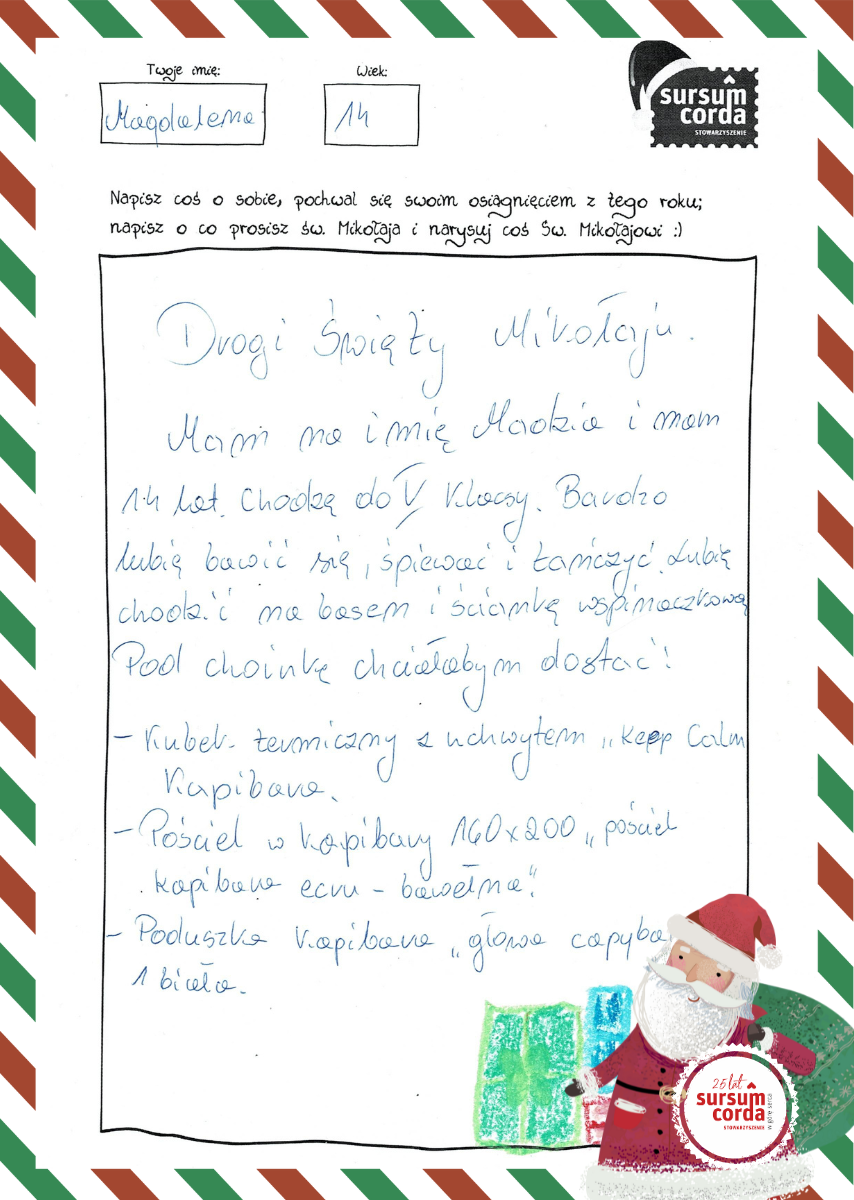 Twoje imię:
Wiek:
Magdalena
14
sursum corda
STOWARZYSZENIE
Napisz coś o sobie, pochwal się swoim osiągnięciem z tego roku;
napisz o co prosisz św. Mikołaja i narysuj coś Św. Mikołajowi :)
Drogi Święty Mikołaju.
Mam na imię Madzia i mam
14 lat. Chodzę do V klasy. Bardzo
lubię bawić się, śpiewać i tańczyć. Lubię
chodzić na basen i ściankę wspinaczkową
Pod choinkę chciałabym dostać:
- Kubek termiczny z uchwytem „Kepp Calm
Kapibara.
- Pościel w kapibary 160x200 „pościel
kapibara ecru - bawełna".
- Poduszka kapibara „głowa capyba
1 biała.
25 lat
sursum corda
STOWARZYSZENIE